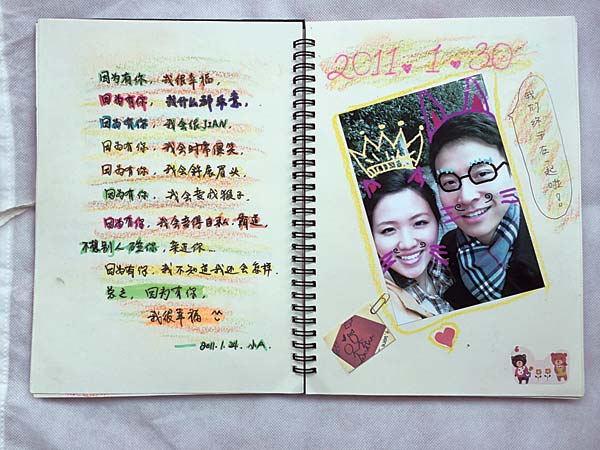 因为有你，我很幸福，
因为有你，我什么都乐意，
因为有你，我会很JIAN
因为有你，我会时常傻笑，
因为有你，我会舒展眉头，
因为有你，我会变成猴子，
因为有你，我会变得自私、霸道，
不想别人碰你，靠近你…
因为有你，我不知道我还会怎样.
总之，因为有你，
我很幸福
2011.1.24. 小A.
2011.1.30
我们终于在一起啦？